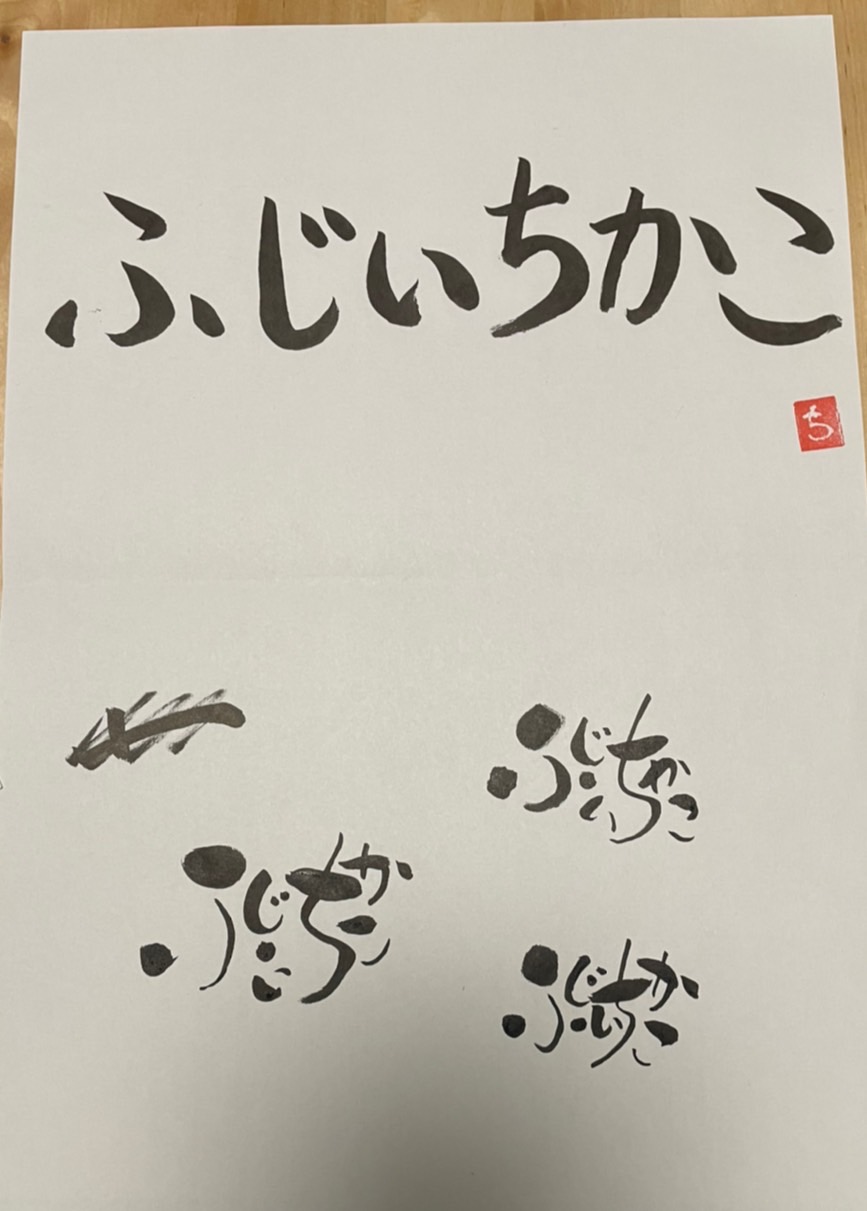 ふじいちかこ
ち
ふじいちかこ
ふじいちかこ
ふじいちかこ